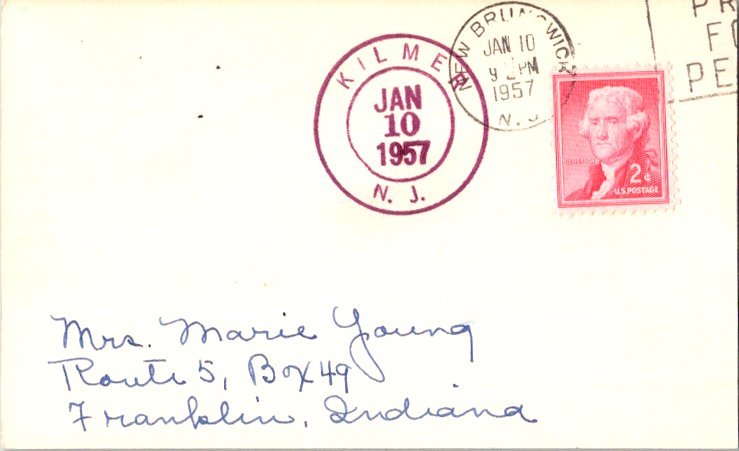 KILMER
JAN
10
1957
N. J.
NEW BRUNSWICK
JAN 10
PM
1957
N. J.
PR
FO
PE
JEFFERSON
2¢
U.S. POSTAGE
Mrs. Marie Young
Route 5, Box 49
Franklin, Indiana